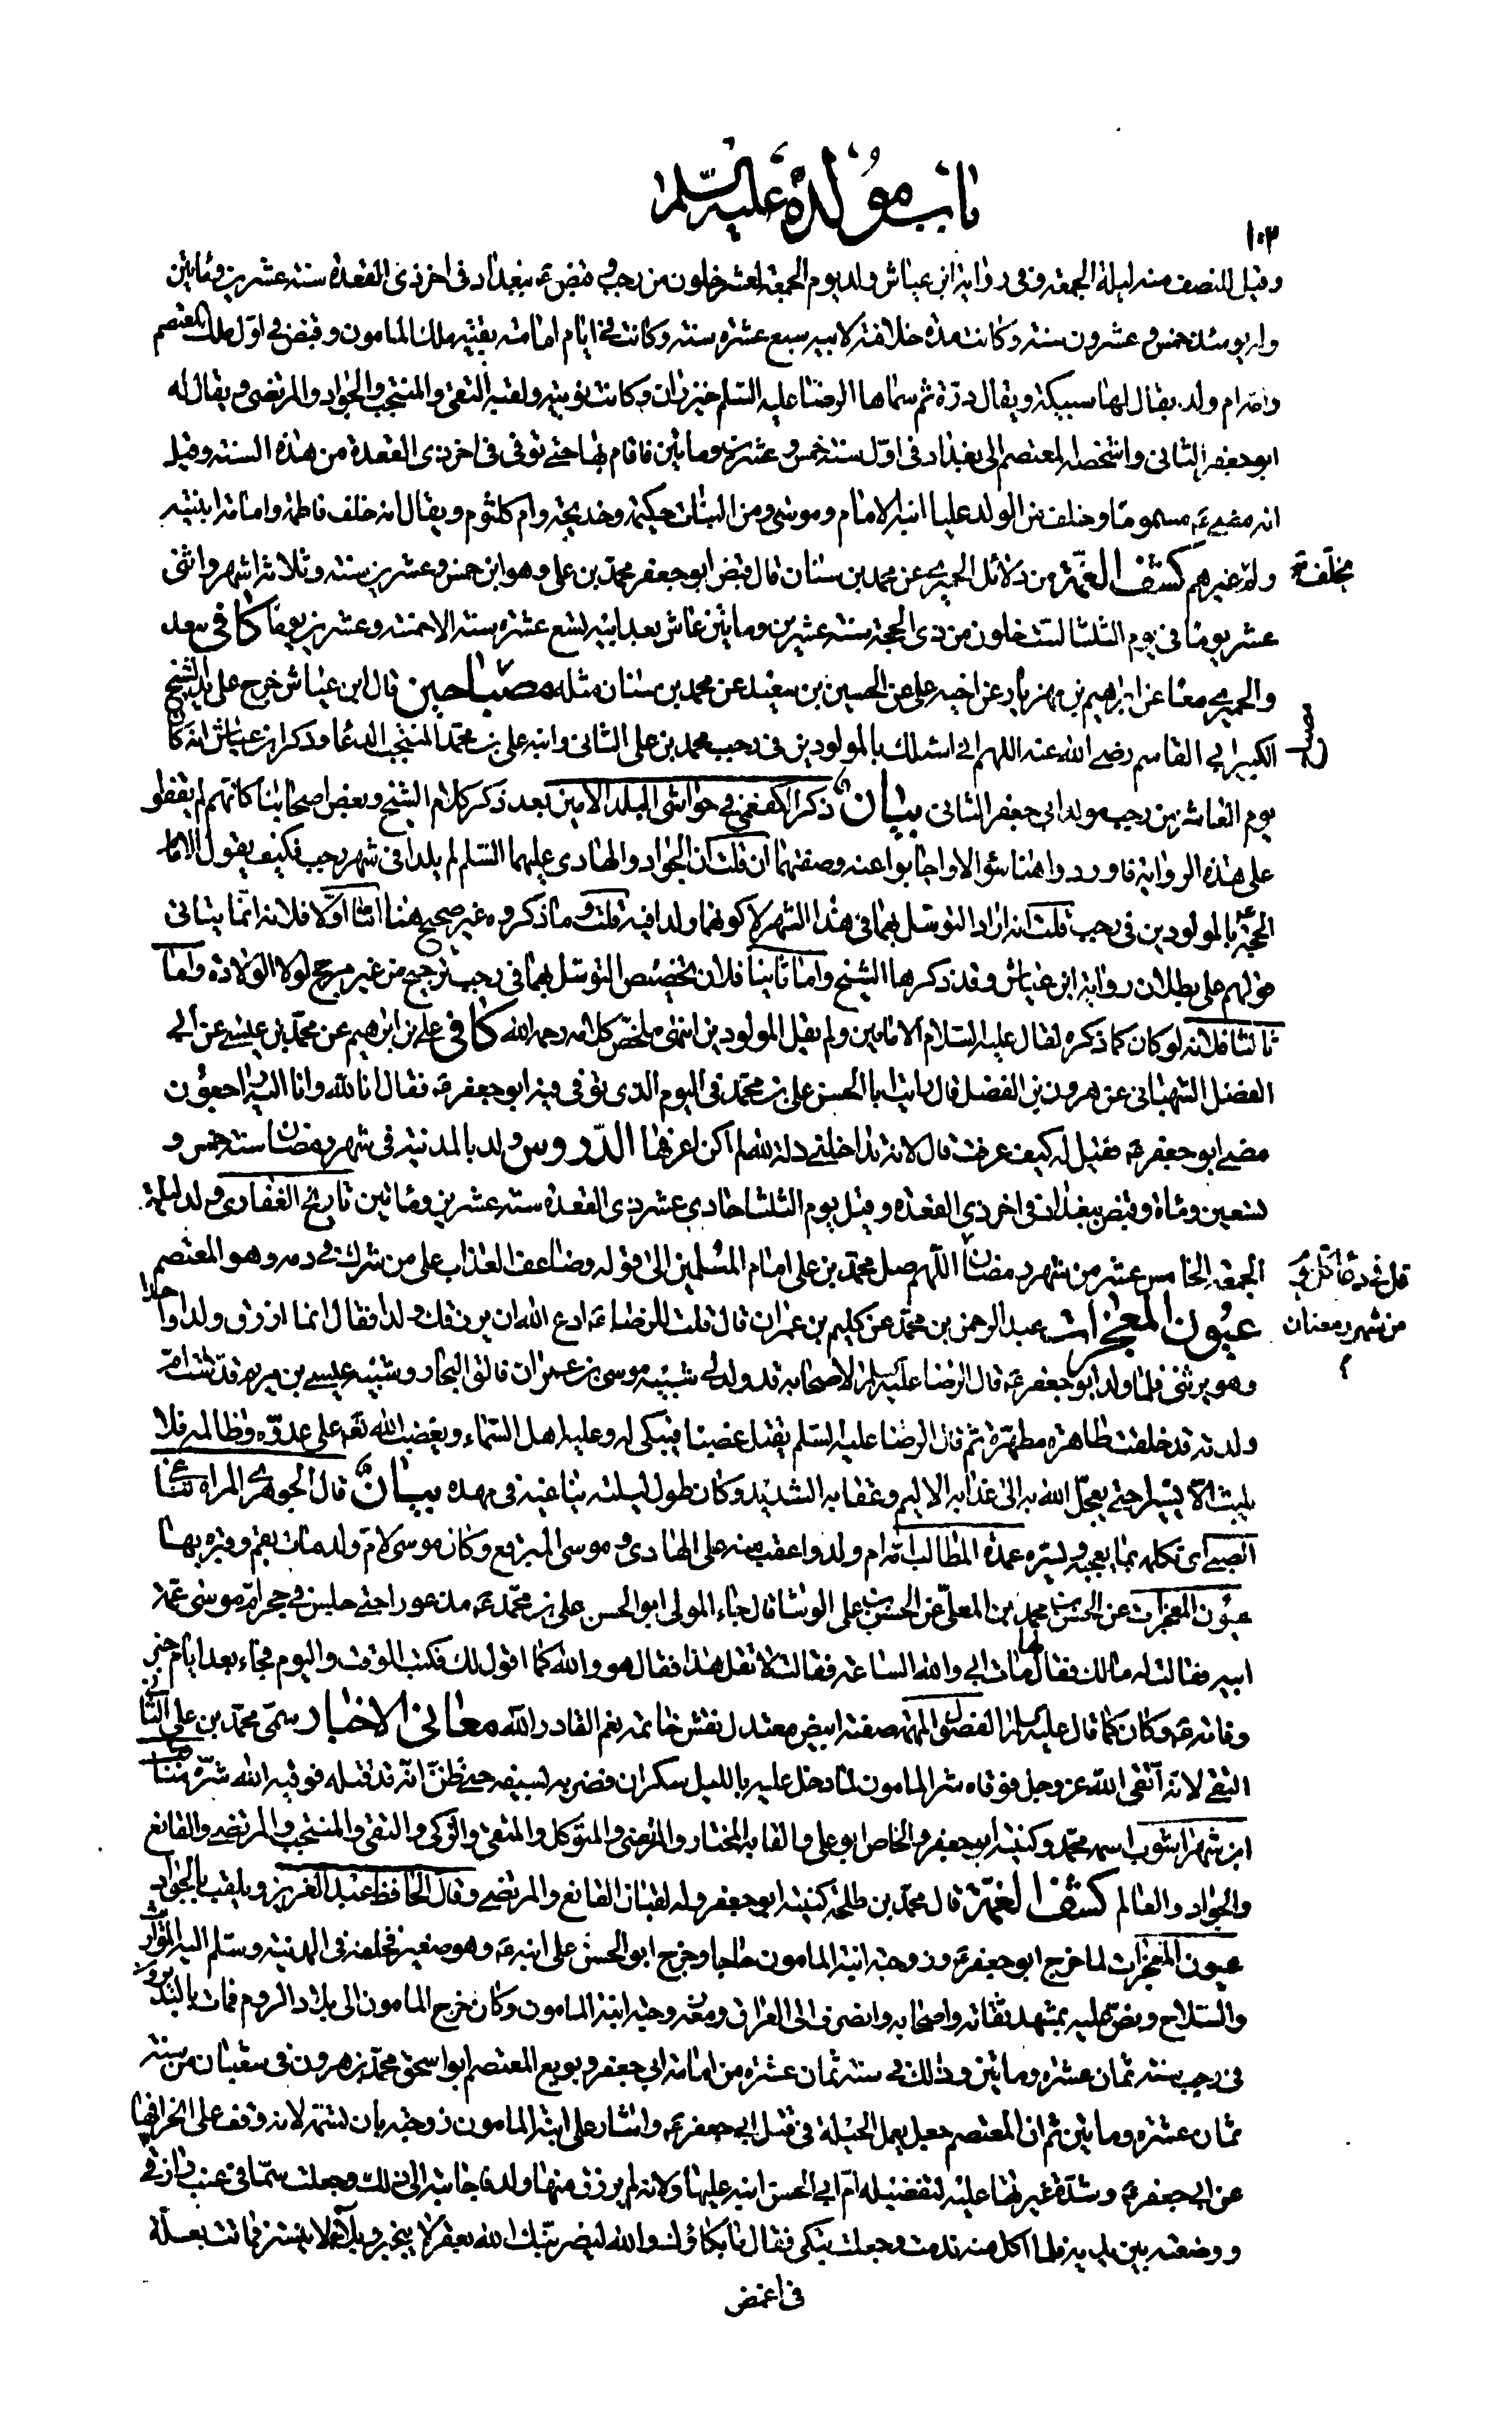 باب مولده عليه السلم
١٠٣
وقيل للنصف منه ليلة الجمعة وفي رواية ابن عياش ولد يوم الجمعة لعشر خلون من رجب وقبض ع ببغداد في اخر ذي القعدة سنة عشرين ومائتين
وله يومئذ خمس وعشرون سنة وكانت مدة خلافته لابيه سبع عشرة سنة وكانت في ايام امامته بقية ملك المامون وقبض في اول ملك المعتصم
وامه ام ولد يقال لها سبيكة ويقال درة ثم سماها الرضا عليه السلم خيزران وكانت نوبية ولقبه التقي والمنتجب والجواد والمرتضى ويقال له
ابو جعفر الثاني واشخصه المعتصم الى بغداد في اول سنة خمس وعشرين ومايتين فاقام بها حتى توفي في اخر ذي القعدة من هذه السنة وقيل
انه مضى ع مسموما وخلف من الولد عليا ابنه الامام وموسى ومن البنات حكيمة وخديجة وام كلثوم ويقال انه خلف فاطمة وامامة ابنتيه
ولم غيرهم كشف الغمة من دلائل الحميري عن محمد بن سنان قال قبض ابو جعفر محمد بن علي وهو ابن خمس وعشرين سنة وثلاثة اشهر واثنى
يخلف
عشر يوما في يوم الثلثا لست خلون من ذي الحجة سنة عشرين ومايتين عاش بعد ابيه تسع عشرة سنة الا خمسة وعشرين يوما كافي سعد
والحميري معا عن ابراهيم بن مهزيار عن اخيه علي عن الحسين بن سعيد عن محمد بن سنان مثله مصباحين قال ابن عياش خرج على يد الشيخ
الكبير ابي القاسم رضي الله عنه اللهم اني اسئلك بالمولودين في رجب محمد بن علي الثاني وابنه علي بن محمد المنتجب الدعا وذكر ابن عياش انه كان
يوم العاشر من رجب مولد ابي جعفر الثاني بيان ذكر الكفعمي في حواشي البلد الامين بعد ذكر كلام الشيخ وبعض اصحابنا كانهم لم يقفوا
على هذه الرواية فاوردوا هنا سؤالا واجابوا عنه وصفتهما ان قلت ان الجواد والهادي عليهما السلم لم يلدا في شهر رجب فكيف يقول الامام
الحجة ع بالمولودين في رجب قلت انه اراد التوسل بهما في هذا الشهر لا كونهما ولدا فيه قلت وما ذكروه غير صحيح هنا اما اولا فلانه انما يتاتى
قولهم على بطلان رواية ابن عياش وقد ذكرها الشيخ واما ثانيا فلان تخصيص التوسل بهما في رجب ترجيح من غير مرجح لولا الولادة واما
ثالثا فلانه لو كان كما ذكره لقال عليه السلام الامامين ولم يقل المولودين انتهى ملخص كلامه رحمه الله كافي علي بن ابرهيم عن محمد بن عيسى عن ابي
الفضل الشهباني عن هرون بن الفضل قال رايت ابا الحسن علي بن محمد في اليوم الذي توفي فيه ابو جعفر ع فقال انا لله وانا اليه راجعون
مضى ابو جعفر ع فقيل له كيف عرفت قال لانه تداخلني ذلة لله لم اكن اعرفها الدروس ولد بالمدينة في شهر رمضان سنة خمس و
تسعين ومائة وقبض ببغداد في اخر ذي القعدة وقيل يوم الثلثا حادي عشر ذي القعدة سنة عشرين ومائتين تاريخ الغفاري ولد ليلة
الجمعة الخامس عشر من شهر رمضان اللهم صل محمد بن علي امام المسلمين الى قوله وضاعف العذاب على من شرك في دمه وهو المعتصم
قل في دعاء كل يوم
من شهر رمضان
عيون المعجزات عبد الرحمن بن محمد عن كليم بن عمران قال قلت للرضا ع ادع الله ان يرزقك ولدا فقال انما ارزق ولدا واحدا
وهو يرثني فلما ولد ابو جعفر ع قال الرضا عليه السلم لاصحابه قد ولد لي شبيه موسى بن عمران فالق البحار وشبيه عيسى بن مريم قدست ام
ولدته قد خلقت طاهرة مطهرة ثم قال الرضا عليه السلم يقتل غصبا فيبكى له وعليه اهل السماء ويغضب الله تع على عدوه وظالمه فلا
يلبث الا يسيرا حتى يعجل الله به الى عذابه الاليم وعقابه الشديد وكان طول ليلته يناغيه في مهده بيان قال الجوهري المراة تناغي
الصبي اي تكلمه بما يعجبه ويسره عمدة المطالب امه ام ولد واعقب منه علي الهادي و موسى المبرقع وكان موسى لام ولد مات بقم وقبره بها
عيون المعجزات عن الحسن بن محمد بن المعلى عن الحسن بن علي الوشا قال جاء المولى ابو الحسن علي بن محمد ع مذعورا حتى جلس في حجر ام موسى عمة
ابيه فقالت له مالك فقال لها مات ابي والله الساعة فقالت لا تقل هذا فقال هو والله كما اقول لك فكتب الوقت واليوم فجاء بعد ايام خبر
وفاته ع وكان كما قال عليه السلم الفصول المهمة صفته ابيض معتدل نقش خاتمه نعم القادر الله معاني الاخبار سمي محمد بن علي الثاني
التقي لانه اتقى الله عز وجل فوقاه شر المامون لما دخل عليه بالليل سكران فضربه بسيفه حتى ظن انه قد قتله فوقيه الله شره
ابن شهراشوب اسمه محمد وكنيته ابو جعفر والخاص ابو علي والقابه المختار والمرتضى والمتوكل والمتقي والزكي والتقي والمنتجب والمرتضى والقانع
والجواد والعالم كشف الغمة قال محمد بن طلحة كنيته ابو جعفر وله لقبان القانع والمرتضى وقال الحافظ عبد العزيز ويلقب بالجواد
عيون المعجزات لما خرج ابو جعفر ع وزوجته ابنة المامون حاجا وخرج ابو الحسن علي ابنه ع وهو صغير فخلفه في المدينة وسلم اليه المواريث
والسلاح ونص عليه بمشهد ثقاته واصحابه وانصرف الى العراق ومعه زوجته ابنة المامون وكان خرج المامون الى بلاد الروم فمات بالبديرون
في رجب سنة ثمان عشرة ومايتين وذلك في سنة ثمان عشرة من امامة ابي جعفر وبويع المعتصم ابو اسحق محمد بن هرون في شعبان من سنة
ثمان عشرة ومايتين ثم ان المعتصم جعل يعمل الحيلة في قتل ابي جعفر ع واشار على ابنة المامون زوجته بان تسمه لانه وقف على انحرافها
عن ابي جعفر ع وشدة غيرتها عليه لتفضيله ام ابي الحسن ابنه عليها ولانه لم يرزق منها ولد فاجابته الى ذلك وجعلت سما في عنب رازقي
ووضعته بين يديه فلما اكل منه ندمت وجعلت تبكي فقال ما بكاؤك والله ليضربنك الله بعقر لا ينجبر وبلاء لا ينستر فماتت بعلة
في اغمض